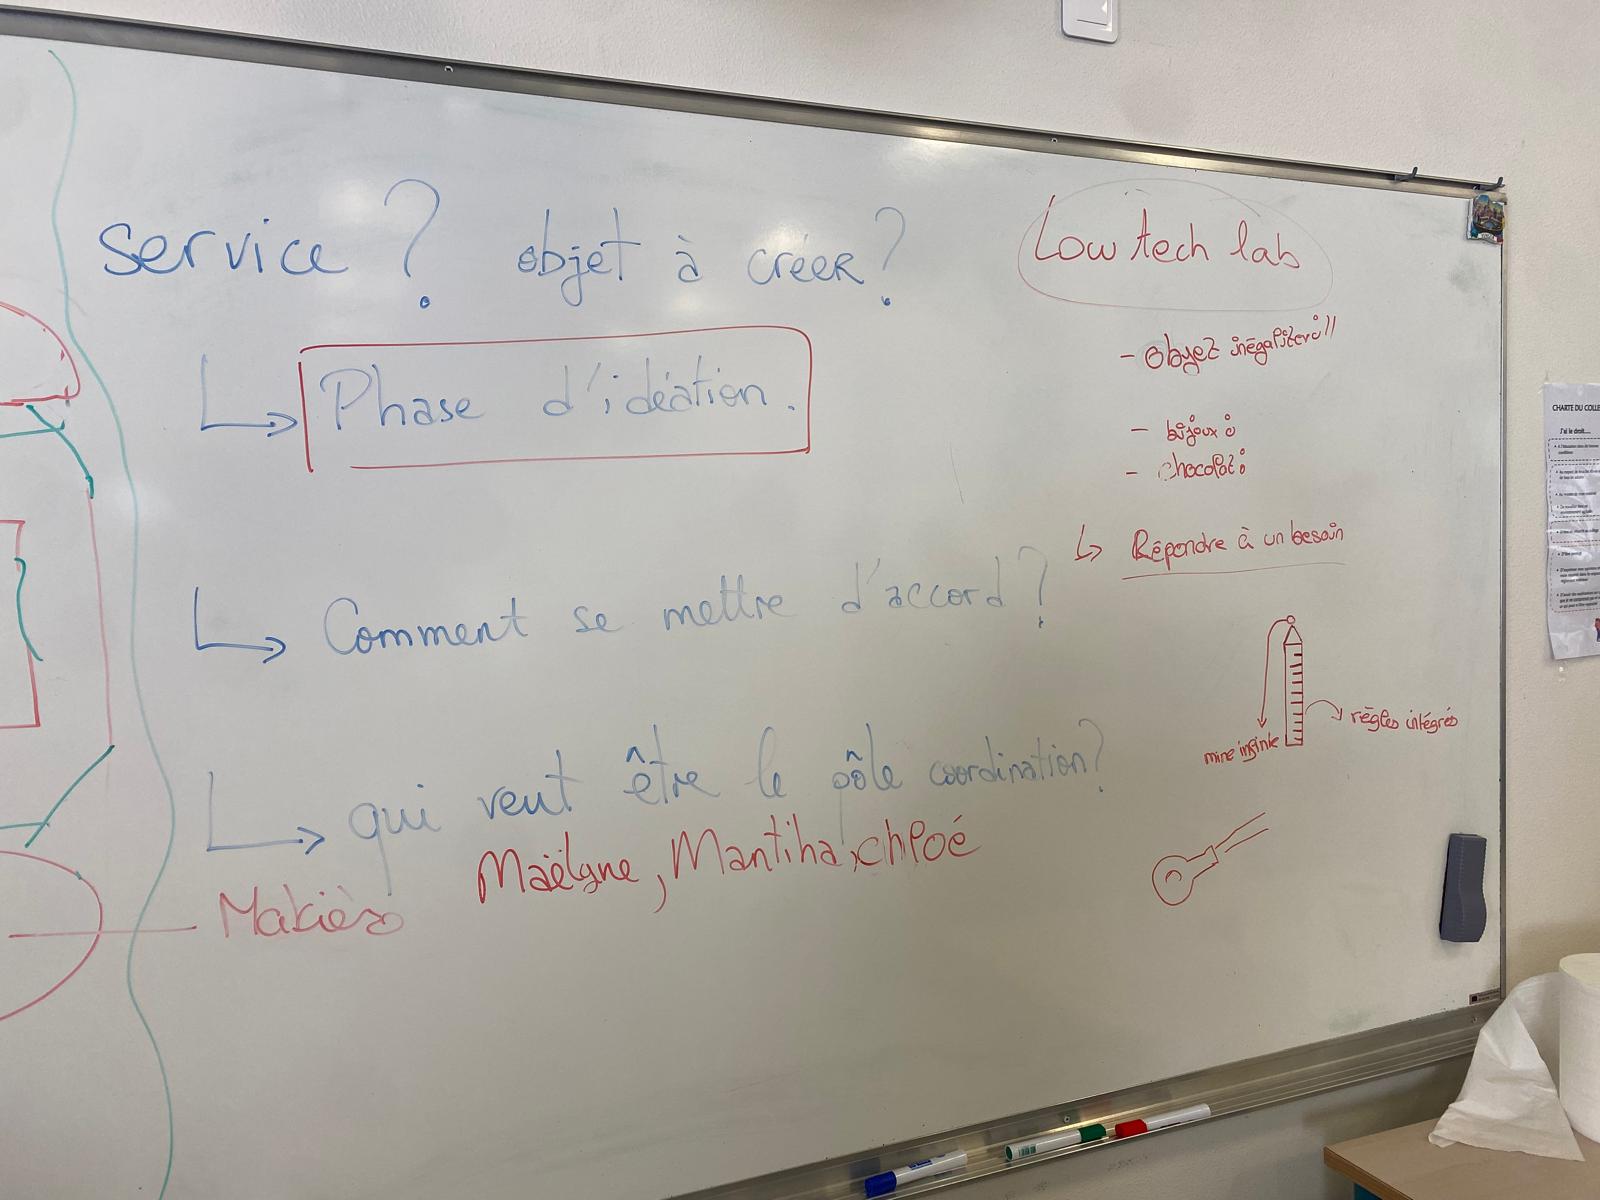 service ? objet à créer ?
Phase d'idéation.
Comment se mettre d'accord ?
qui veut être le pôle coordination ?
Maëlyne, Mantiha, chloé
Low tech lab
- objet
- bijoux
- chocolat
Répondre à un besoin
mine infinie
règles intégrés
CHARTE DU COLLE
J'ai le droit....